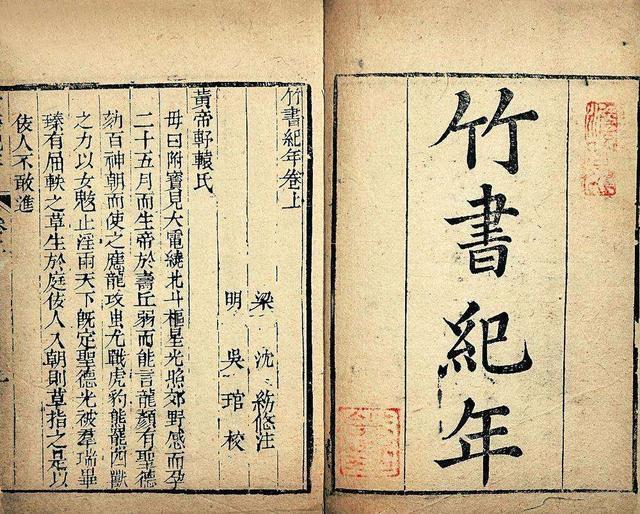 竹書紀年
竹書紀年卷上
梁 沈約悠注
明 吳琯校
黃帝軒轅氏
母曰附寶見大電繞北斗樞星光照郊野感而孕
二十五月而生帝於壽丘弱而能言龍顏有聖德
劾百神朝而使之應龍攻蚩尤戰虎豹熊羆四獸
之力以女魃止淫雨天下既定聖德光被羣瑞畢
臻有屈軼之草生於庭佞人入朝則草指之是以
佞人不敢進